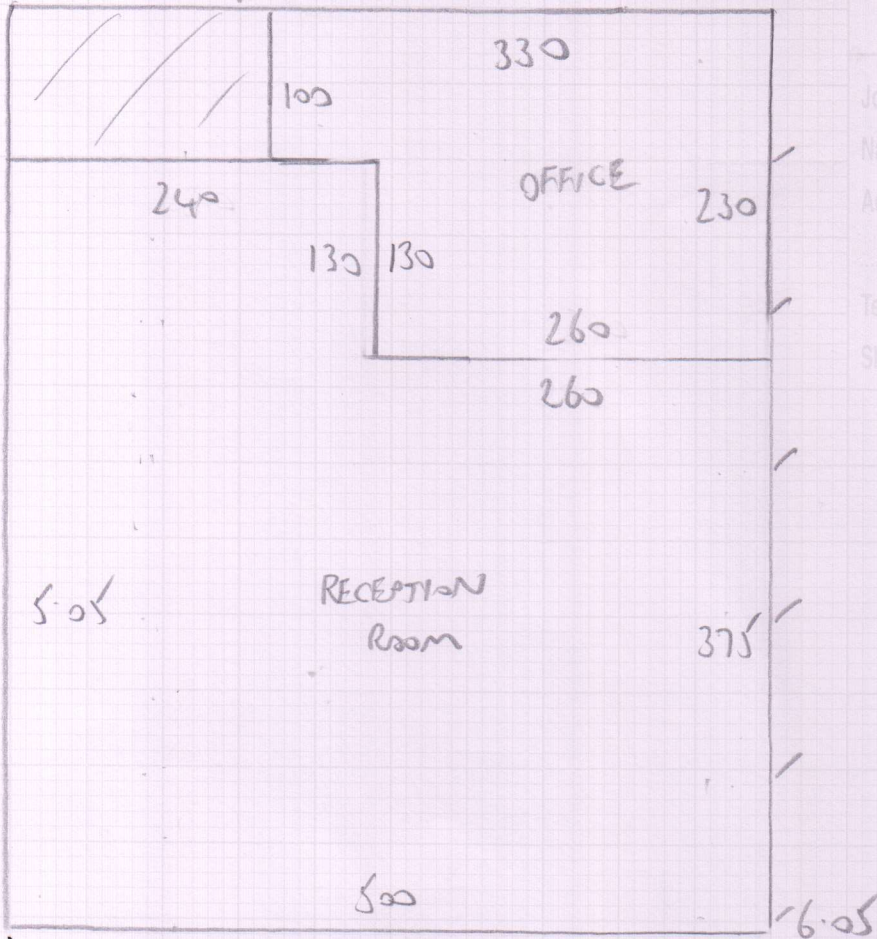 330
100
OFFICE
240
230
130 130
260
260
5.05
RECEPTION
ROOM
375
500
6.05